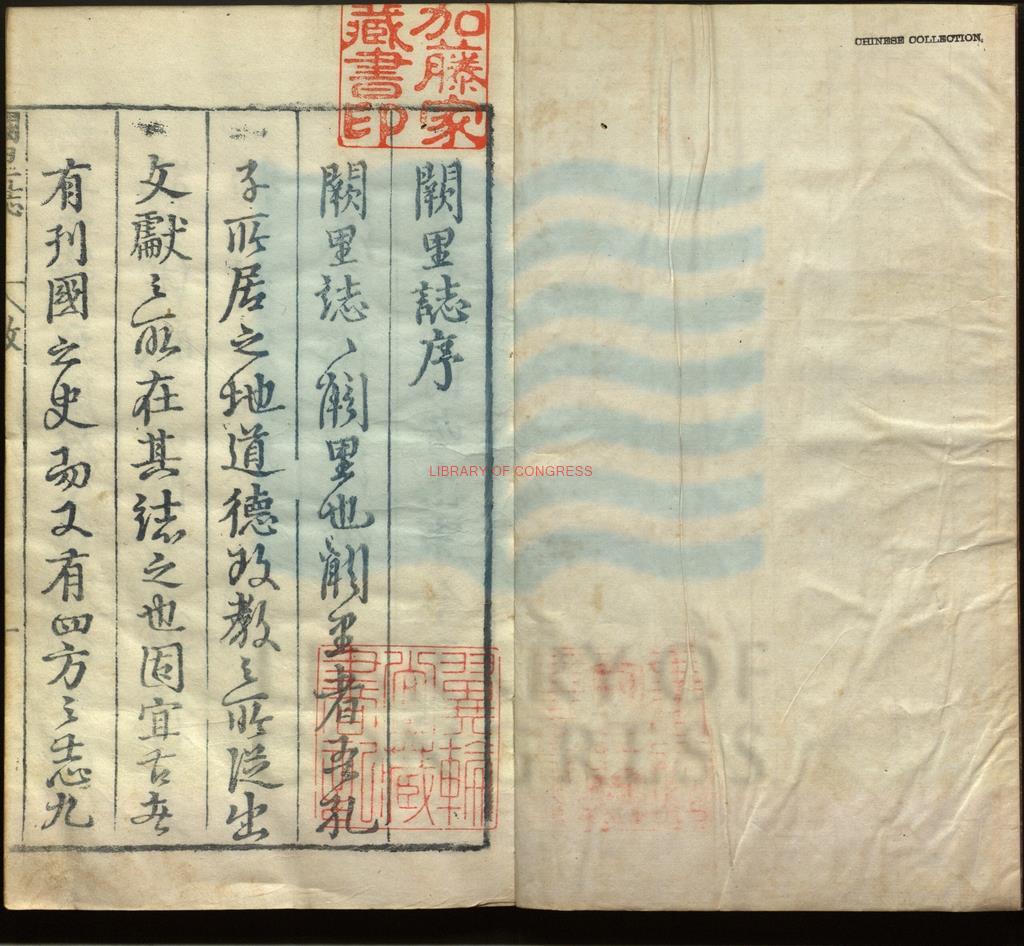 CHINESE COLLECTION.
加藤家
藏書印
闕里誌序
闕里誌、闕里也闕里者吾孔
子所居之地道德政教之所從出
文獻之所在其誌之也固宜古者
有列國之史而又有四方之志九
LIBRARY OF CONGRESS